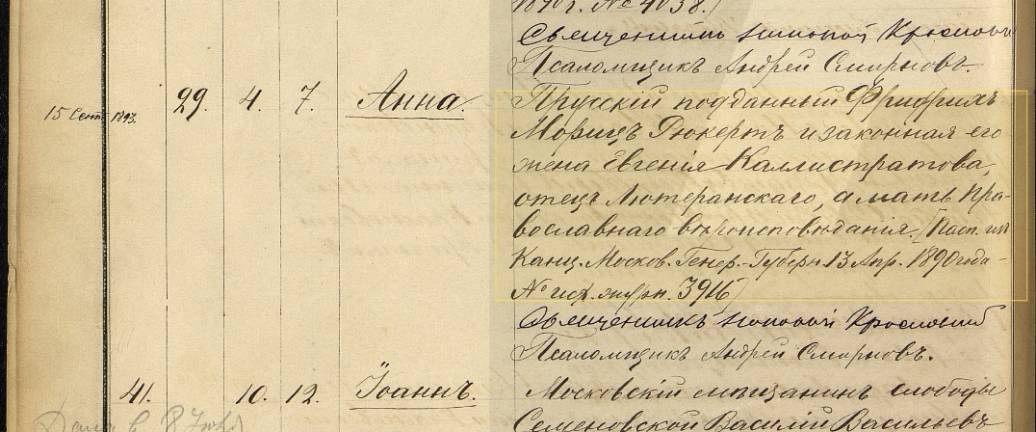 1890 г. № 4038.)
Священникъ Николай
Псаломщикъ Андрей Смирновъ.
15 Сент 1893. 29. 4. 7. Анна. Прусскій подданный Фридрихъ
Морицъ Рюкертъ и законная его
жена Евгенія Каллистратова,
отецъ Лютеранскаго, а мать Пра-
вославнаго вѣроисповѣданія. (Пасп. изъ
Канц. Москов. Генер.-Губерн 13 Апр. 1890 года
№ исх. журн. 3916)
Священникъ
Псаломщикъ Андрей Смирновъ.
41. 10. 12. Іоаннъ. Московскій мѣщанинъ слободы
Семеновской Василій Васильевъ